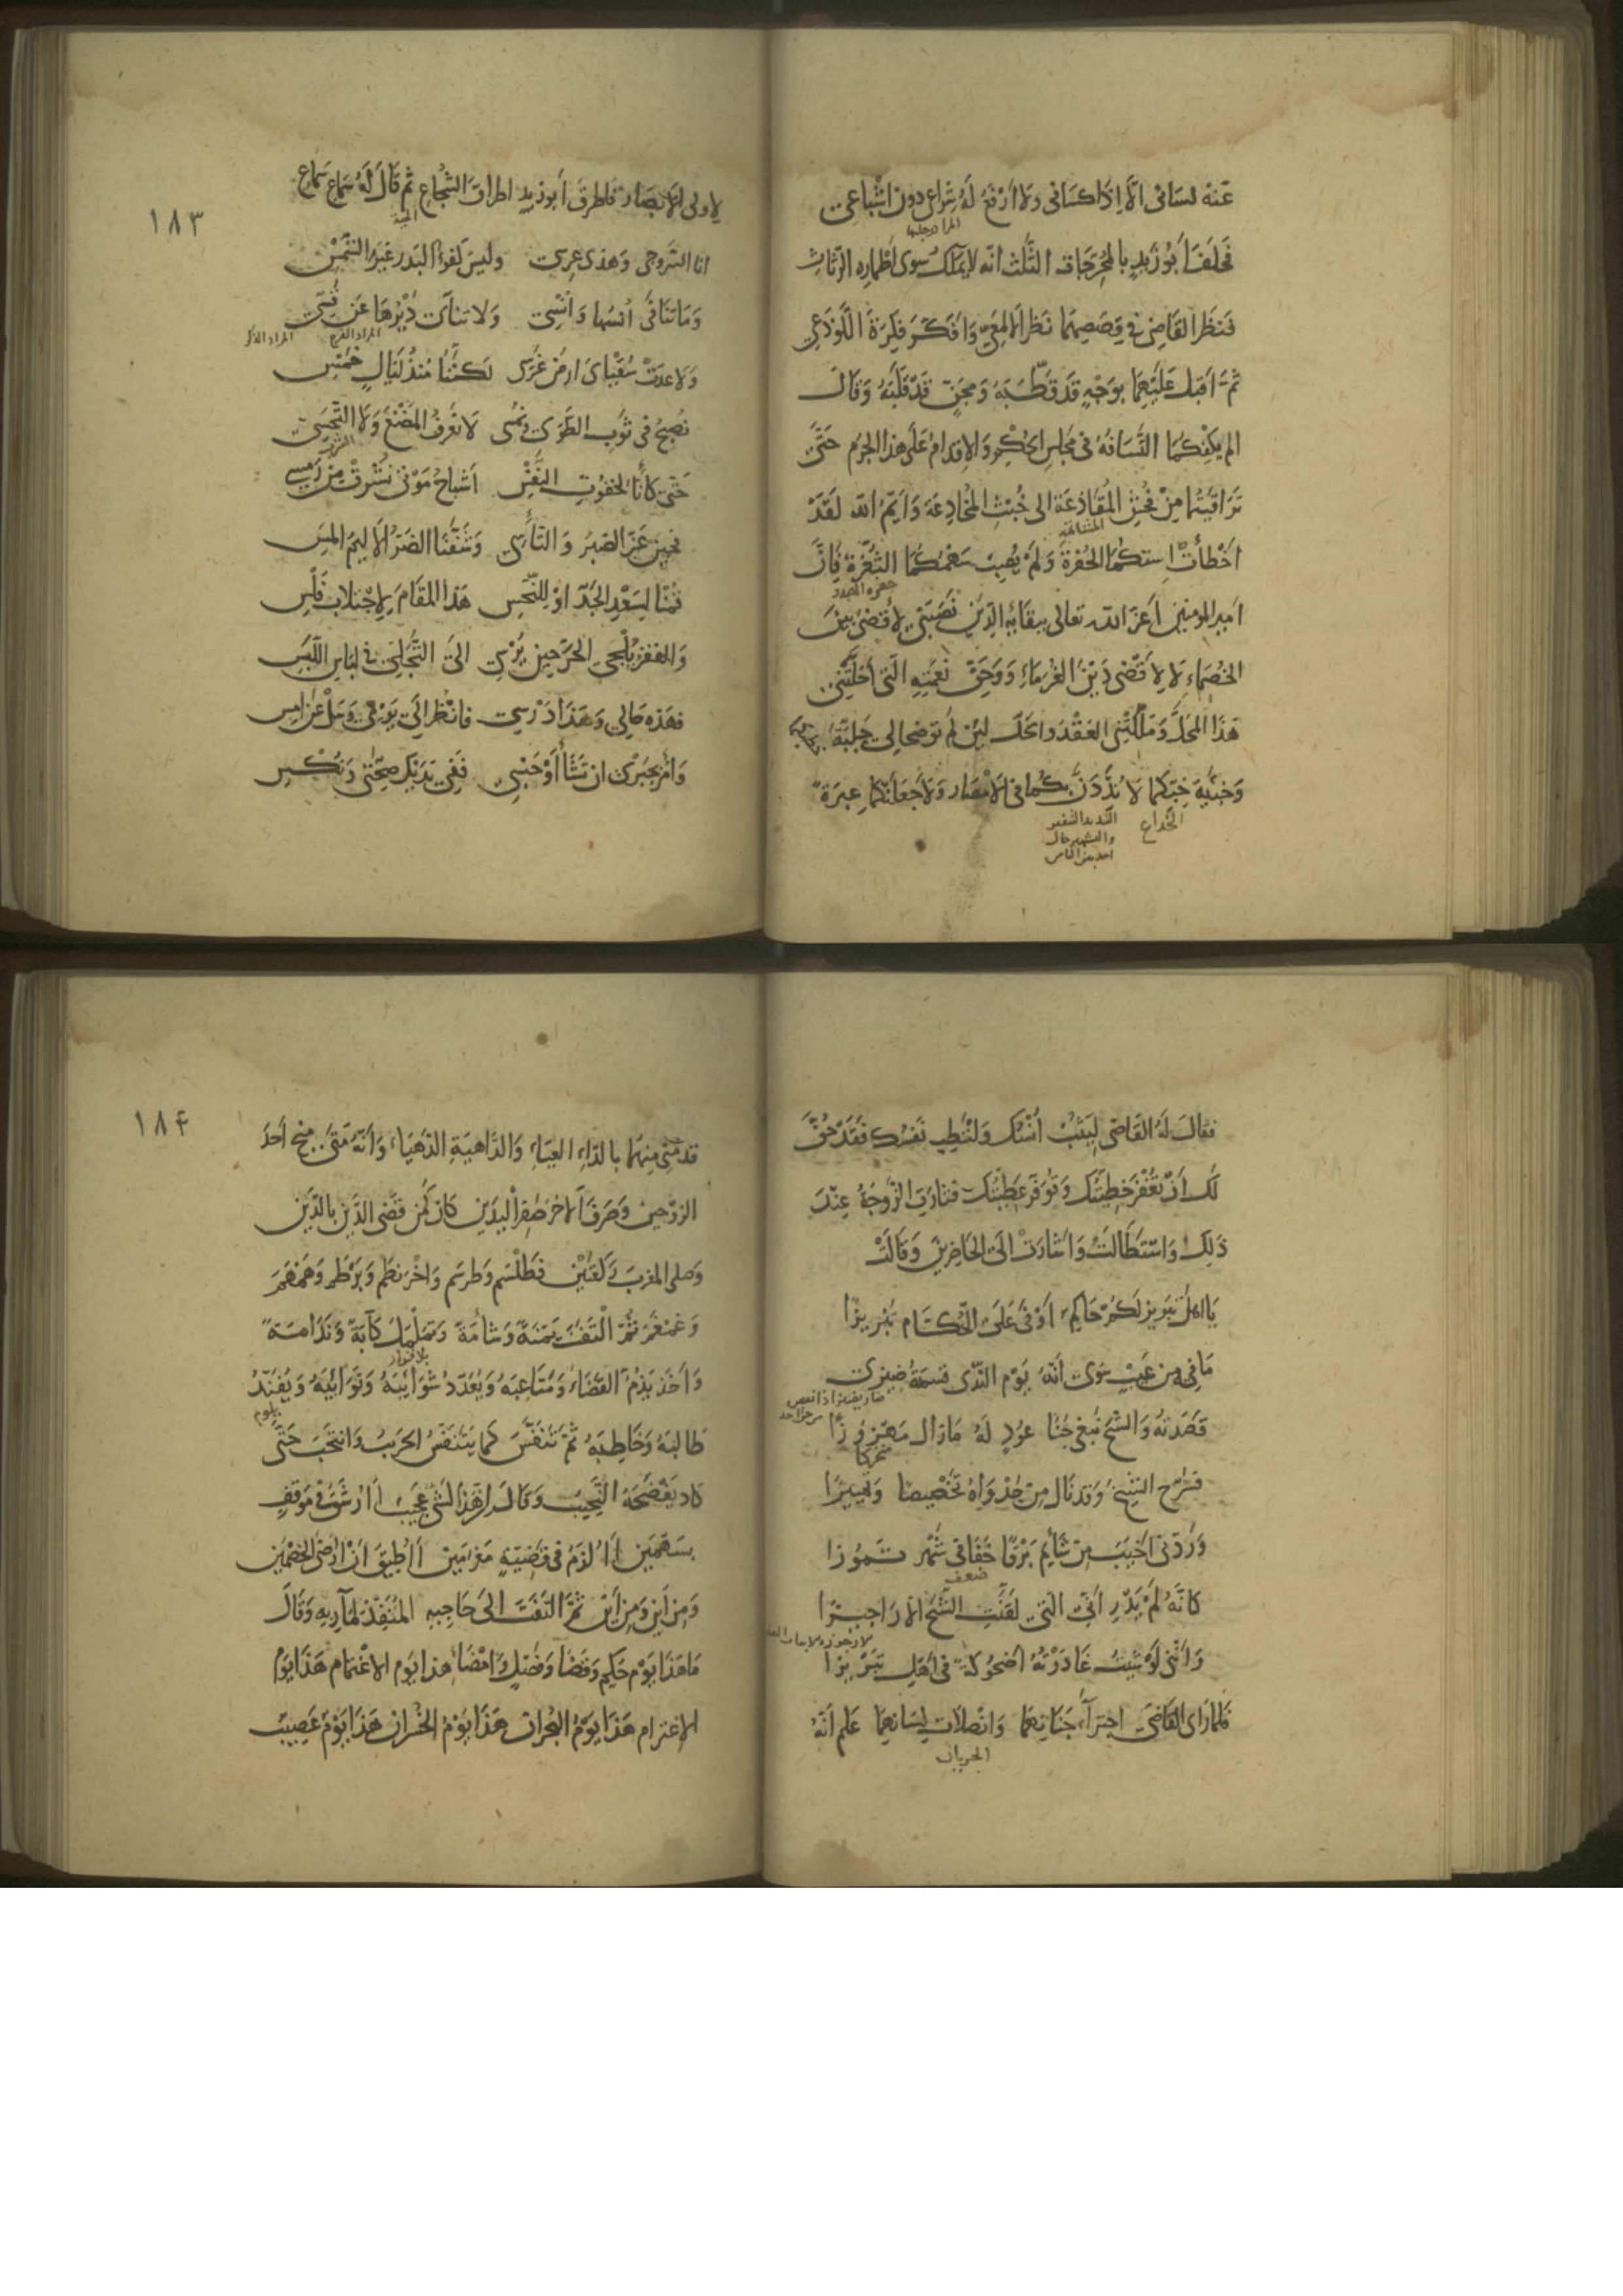 عَنهُ لسَانى الَّا اِذَا كسَانى وَلا اَرْفَعُ لَهُ شِراعى دون اشْبَاعى
فَحلَفَ اَبُو زَيدٍ بالمحْرِجَات الثَّلث انّه لا يَملك سوى اَطْمارِه الرّثاث
فَنظَرَ القَاضِى فى قِصَصِهِمَا نَظَرَ الاَلمَعِىِّ وَاَفكَرَ فِكرَةَ اللَّوْذَعِىِّ
ثمَّ اَقبَلَ عَلَيهِمَا بوَجْهٍ قَد قَطَّبَهُ وَمجَنٍّ قَدْ قَلَبَهُ وَقَالَ
الم يكفِكُمَا التَّسَافُهُ فى مجلسِ الحُكْمِ وَالاِقدامُ عَلى هذا الجرم حَتَّى
تَرَاقَيتُما مِنْ فُحْشِ المُقَاذَعَة الى خُبْثِ المُخَادَعَة وَاَيمُ الله لَقَدْ
المشاتمة
اَخْطأت استكُمَا الحُفرةَ وَلَمْ يُصِبْ سَهمُكُمَا الثُّغْرَةَ فَاِنَّ
اَميرَ المومنين اَعزّ الله تعالى ببقَائِه الدِّينَ نَصَبَنى لاَقضىَ بينَ
الخُصَمَاءِ لَا لِاَقْضى دَيْنَ الغُرمَاءِ وَوَحَقِّ نعمَتِهِ الّتى اَحَلَّتْنى
هَذَا المحَلَّ وَمَلَّكَتْنِى العَقْدَ وَالحَلَّ لئِن لَم توضحا لى جَلِيَّةَ
وَخَبِيَّةَ خبِّكمَا لَاُندِّدَنَّ بكُما فى الاَمْصَار وَلَاَجعَلنَّكما عِبرَةً
الخداع
لاولى الاَبْصَار فاَطرقَ اَبو زيد اطراقَ الشُّجَاع ثم قَالَ لَهُ سَمَاعِ سَمَاعِ
الحية
١٨٣
انا السَّروجى وَهذى عِرسى وليسَ كفوءُ البَدر غيرَ الشَّمْسِ
وَمَا تَنَافَى اُنسُها وَاُنسِى وَلا تَناَى دَيْرُهَا عَن قُسّى
ولا عدَت سُقْيَاىَ ارضَ غَرْسى لكنَّنَا مُنذُ لَيَالٍ خَمْسِ
نُصبحُ فى ثَوبِ الطَّوَى ونُمسى لا نَعْرفُ المَضْغَ وَلَا التَّحَسِّى
حَتّى كاَنَّا لخفُوتِ النَّفْسِ اَشباحُ مَوْتى نُشِرتْ مِن رَمسِ
فحِين عَزّ الصَبْرُ وَالتَّاَسِّى وَشَفَّنَا الضرُّ الاَليمُ المسِّ
قُمْنَا لسَعْدِ الجَدِّ اوْ للنّحسِ هَذا المقَامَ لاِجتلابِ فَلْسِ
وَالفقرُ يُلْجى الحُرَّ حين يُرْسى الىَ التَّجَلِّى فى لبَاسِ اللَّبْسِ
فهَذه حالى وَهَذا دَرْسى فانْظر الى يَومى وَسَلْ عَن امسِ
وَأمُر بجَبْرى ان تَشَأ اَوْ حَبْسى ففى يَدَيكَ صِحَّتى وَنُكسِى
فقَالَ لهُ القَاضى لِيَثُبْ اُنْسُكَ وَلتَطِبْ نَفسُك فَقَدْ حقَّ
لَكَ اَنْ تُغْفَرَ خَطِيئَتُكَ وَتُوَفَّرَ عَطِيَّتُكَ فثارَتِ الزَّوجَةُ عِنْدَ
ذَلِكَ وَاستَطَالَتْ وَاَشَارَتْ الى الحَاضِرينَ وَقَالَتْ
يَا اهلَ تبرِيزَ لَكُم حَاكِمٌ اَوْفَى عَلَى الحُكّام تَبْرِيزَا
مَا فيهِ مِن عَيْبٍ سوَى انَّهُ يَوْم النَّدَى قِسمَةُ ضِيزَى
قصَدتهُ وَالشَّيخَ نَبغى جَنَا عُودٍ لَهُ مَا زالَ مَهزُوزَا
فسَرَّحَ الشَّيخَ وَقد نَالَ مِن جَدْوَاهُ تَخْصِيصًا وَتمْيِيزَا
وَرَدَّنى اَخيَبَ مِن شَائمٍ بَرْقًا خَفَا فى شَهْرِ تَموزَا
ضعف
كاَنَّهُ لَمْ يَدْرِ اَنِّى الّتى لَقَّنتُ الشَّيخَ الاَرَاجِيزَا
وَاَنَّنى لَوْ شِيتُ غَادَرْتُهُ اُضحُوكَةً فى اَهْلِ تَبْرِيزَا
فلمَّا رَاى القَاضى اجتراَءَ جَنَانِهِمَا وَانْصلَاتَ لِسَانِهِمَا عَلم انّهُ
١٨٤
قد مُنِىَ مِنهُمَا بالدَّاءِ العيَاءِ وَالدَّاهيَةِ الدَّهيَاءِ وَانّهُ مَتَى منحَ اَحَدَ
الزوْجينِ وَصَرَفَ الاخَرَ صِفْرَ اليَدَين كانَ كَمَن قَضَى الدَّيْنَ بالدَّيْن
وَصلى المغربَ رَكعَتَيْنِ فَطَلْسَمَ وَطَرسَمَ وَاخْرَنطَمَ وَبَرْطَمَ وَهَمْهَمَ
وَغمْغَمَ ثُمَّ الْتَفَتَ يَمْنَةً وَشَامَةً وَتمَلْمَلَ كآبَةً وَنَدَامَةً
وَاَخَذ يَذُمُّ القَضَاءَ وَمَتَاعِبَهُ وَيَعُدّدُ شَوَائِبَهُ وَنَوَائِبَهُ وَيُفَنِّدُ
يلوم
طَالبَهُ وَخَاطِبَهُ ثُمّ تَنَفَّسَ كَمَا يَتَنَفّسُ الحَرِيبُ وَانتَحَبَ حَتَّى
كادَ يَفْضَحُهُ النَّحِيبُ وَقَالَ اِنَّ هَذَا لَشَىْءٌ عَجِيبٌ اَاُرْشَقُ فى مَوْقفٍ
بسَهْمَين اَاُلزَمُ فى قضِيّةٍ مَغْرَمَينِ اَاُطيقُ انْ اُرْضِىَ الخصْمَين
وَمِن اَيْنَ وَمِن اَيْنَ ثمَّ التَفَتَ الى حَاجِبِه المُنَفِّذ لمآرِبِهِ وَقَالَ
مَا هَذَا يَوْمُ حُكمٍ وَقَضَاءٍ وَفصلٍ وَامْضَاءٍ هذا يَوم الاغتمَام هَذَا يَوْمُ
الاِغترَام هَذَا يَومُ البُحرانِ هَذَا يَوْمُ الخُسرَان هَذَا يَوْمٌ عَصِيبٌ